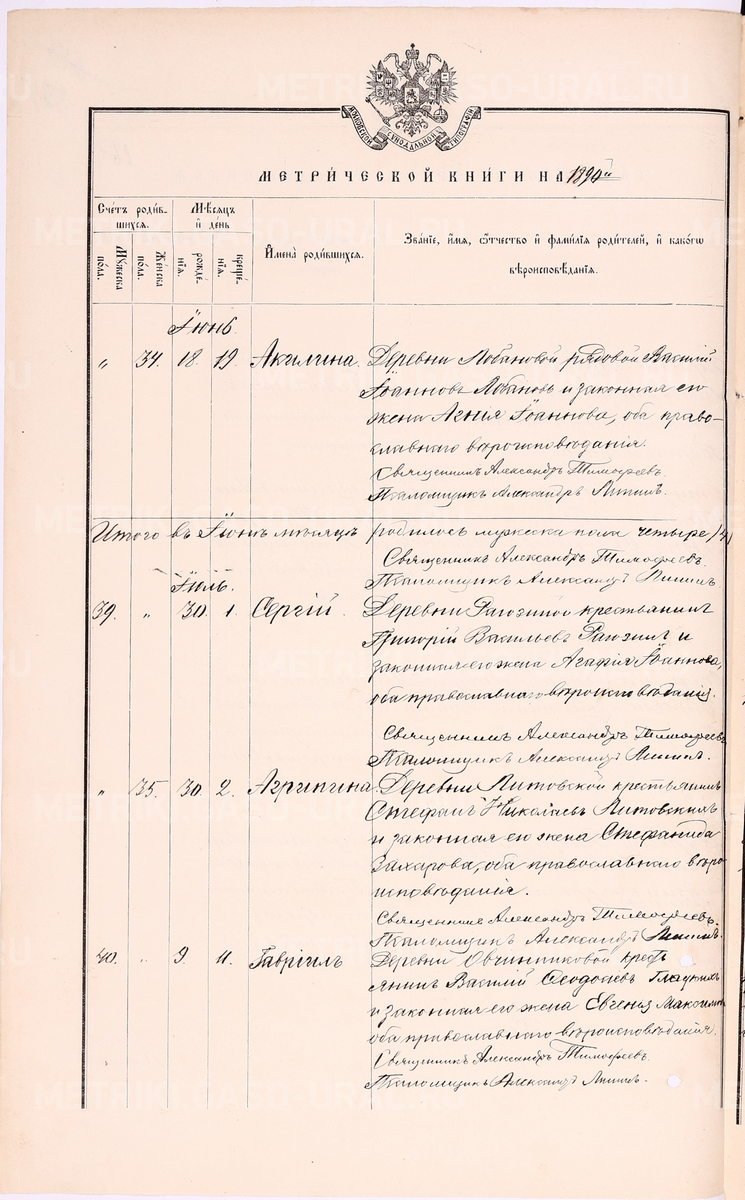 МОСКОВСКОЙ СѴНОДАЛЬНОЙ ТИПОГРАФІИ
МЕТРИ́ЧЕСКОЙ КНИГИ НА 1890й
Сче́тъ роди́в-
шихся.
Му́жеска по́ла.
Же́нска по́ла.
Мѣ́сяцъ
и҆ де́нь
рожде́-нїѧ.
креще́-нїѧ.
И҆мена̀ роди́вшихся.
Зва́нїе, и҆́мѧ, ѻ҆́тчество и҆ фами́лїѧ роди́телей, и҆ како́гѡ
вѣроисповѣ́данїѧ.
Іюнь.
„ 34. 18. 19. Акилина. Деревни Лобановой рядовой Василій
Іоанновъ Лобановъ и законная его
жена Агнія Іоаннова, оба право-
славнаго вѣроисповѣданія.
Священникъ Александръ Тимофеевъ
Псаломщикъ Александръ
Итого въ Іюнѣ мѣсяцѣ родилось мужеска пола четыре /4/
Священникъ Александръ Тимофеевъ.
Псаломщикъ Александръ
Іюль.
39. „ 30. 1. Сергій. Деревни крестьянинъ
Григорій Васильевъ и
законная его жена Агафія Іоаннова,
оба православнаго вѣроисповѣданія.
Священникъ Александръ Тимофеевъ
Псаломщикъ Александръ
„ 35. 30. 2. Агрипина. Деревни Литовской крестьянинъ
Стефанъ Николаевъ Литовскихъ
и законная его жена Стефанида
Захарова, оба православнаго вѣро-
исповѣданія.
Священникъ Александръ Тимофеевъ.
Псаломщикъ Александръ
40. „ 9. 11. Гавріилъ Деревни Овчинниковой кресть
янинъ Василій Ѳеодосіевъ
и законная его жена Евгенія
оба православнаго вѣроисповѣданія.
Священникъ Александръ Тимофеевъ
Псаломщикъ Александръ